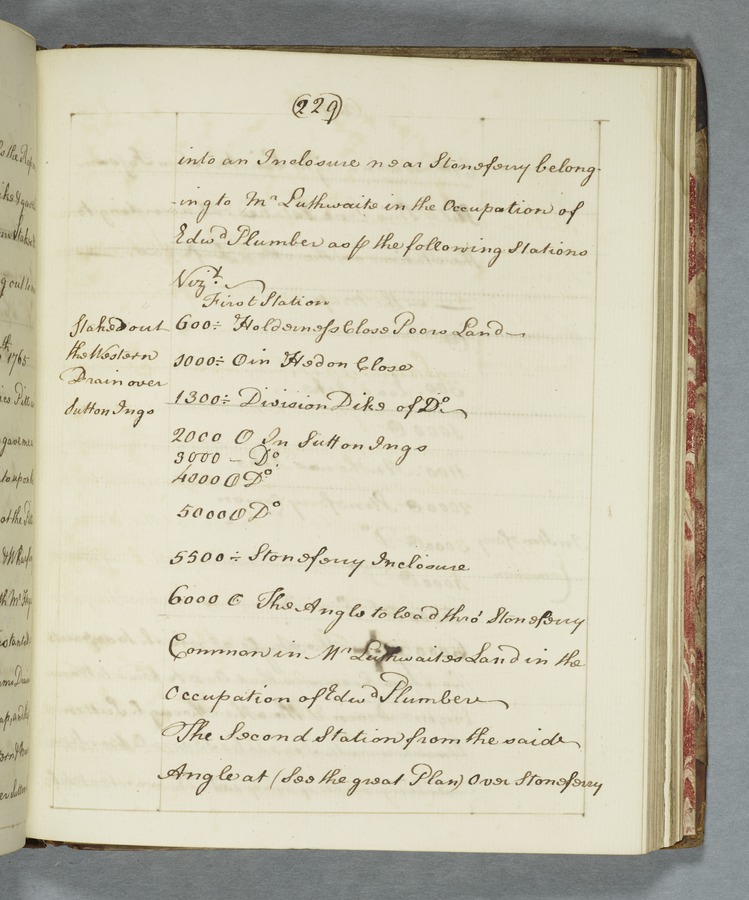 229
into an Inclosure near Stoneferry belong-
-ing to Mr Luthwaite in the Occupation of
Edwd Plumber as ⅌ the following Stations
Vizt.
First Station
Staked out
the Western
Drain over
Sutton Ings
600÷ Holderness Close Poors Land
1000÷ O in Hedon Close
1300÷ Division Dike of Do
2000 O In Sutton Ings
3000 – Do
4000 O Do
5000 O Do
5500÷ Stoneferry Inclosure
6000 O The Angle to lead thro' Stoneferry
Common in Mr Luthwaites Land in the
Occupation of Edwd Plumber
The Second Station from the said
Angle at (See the great Plan) Over Stoneferry